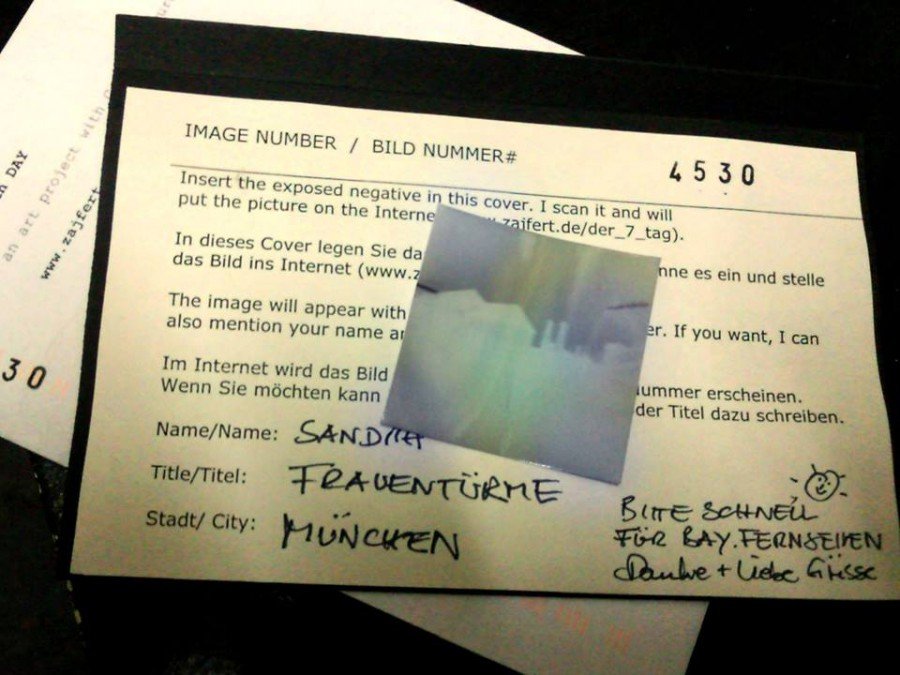 IMAGE NUMBER / BILD NUMMER#
4530
Insert the exposed negative in this cover. I scan it and will
put the picture on the Interne zajfert.de/der_7_tag).
In dieses Cover legen Sie da nne es ein und stelle
das Bild ins Internet (www.z
The image will appear with er. If you want, I can
also mention your name a
Im Internet wird das Bild ummer erscheinen.
Wenn Sie möchten kann der Titel dazu schreiben.
Name/Name: SANDRA
Title/Titel: FRAUENTÜRME
Stadt/ City: MÜNCHEN
BITTE SCHNELL
FÜR BAY. FERNSEHEN
Danke + Liebe Grüsse
DAY
an art project with
www.zajfert
30